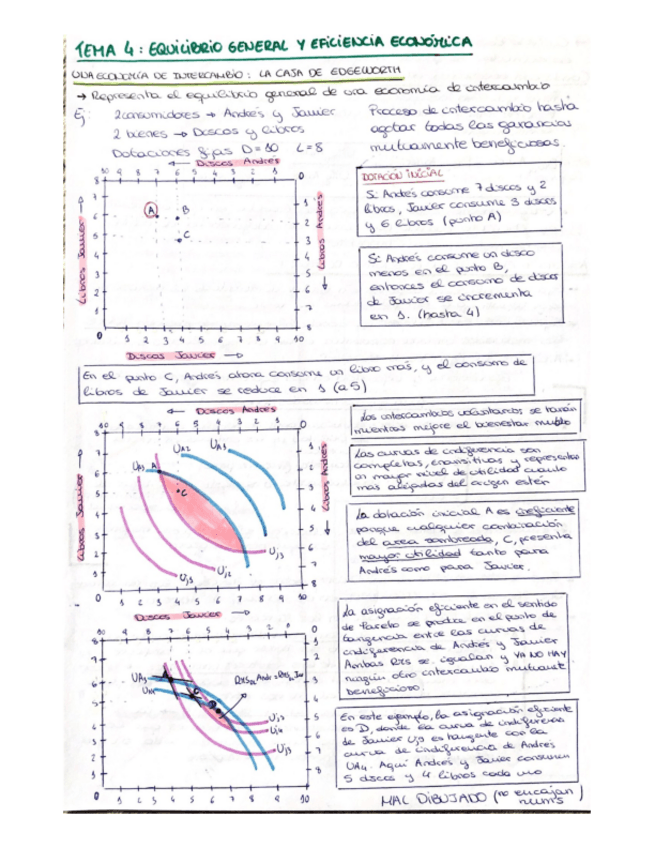 TEMA 4: EQUILIBRIO GENERAL Y EFICIENCIA ECONÓMICA
UNA ECONOMÍA DE INTERCAMBIO: LA CAJA DE EDGEWORTH
→ Representa el equilibrio general de una economía de intercambio
Ej: 2 consumidores → Andrés y Javier
2 bienes → Discos y libros
Dotaciones fijas D=10 L=8
Proceso de intercambio hasta
agotar todas las ganancias
mutuamente beneficiosas.
← Discos Andrés
Libros Javier →
Libros Andrés →
A
B
C
Discos Javier →
DOTACIÓN INICIAL
Si Andrés consume 7 discos y 2
libros, Javier consume 3 discos
y 6 libros (punto A)
Si Andrés consume un disco
menos en el punto B,
entonces el consumo de discos
de Javier se incrementa
en 1. (hasta 4)
En el punto C, Andrés ahora consume un libro más, y el consumo de
libros de Javier se reduce en 1 (a 5)
← Discos Andrés
Libros Javier →
Libros Andrés →
UA2
UA3
A
C
UJ3
UJ2
UJ1
Discos Javier →
Los intercambios voluntarios se harán
mientras mejore el bienestar mutuo
Las curvas de indiferencia son
completas, transitivas y representan
un mayor nivel de utilidad cuanto
más alejadas del origen estén
La dotación inicial A es ineficiente
porque cualquier combinación
del area sombreada, C, presenta
mayor utilidad tanto para
Andrés como para Javier.
La asignación eficiente en el sentido
de Pareto se produce en el punto de
tangencia entre las curvas de
indiferencia de Andrés y Javier
Ambas RMS se igualan y YA NO HAY
ningún otro intercambio mutuamente
beneficioso
En este ejemplo, la asignación eficiente
es D, donde la curva de indiferencia
de Javier UJ3 es tangente con la
curva de indiferencia de Andrés
UA4. Aquí Andrés y Javier consumen
5 discos y 4 libros cada uno
MAL DIBUJADO (no encajan
nums)